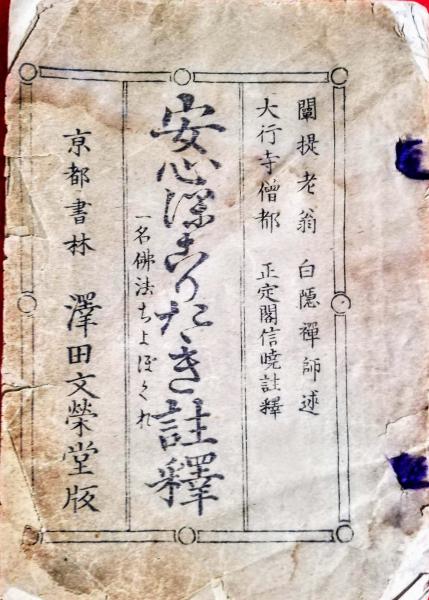 闡提老翁 白隱禪師述
大行寺僧都 正定閣信曉註釋
安心ほこりたゝき註釋
一名佛法ちよぼくれ
亰都書林 澤田文榮堂版